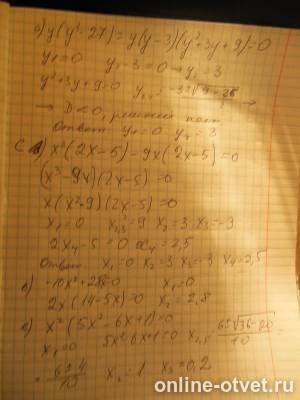 y(y³-27)=y(y-3)(y²+3y+9)=0
y₁=0 y-3=0 → y₂=3
y²+3y+9=0 y₃,₄= -3±√9-36 / 2 →
→ D<0, решений нет
Ответ: y₁=0 y₂=3
x³(2x-5)-9x(2x-5)=0
(x³-9x)(2x-5)=0
x(x²-9)(2x-5)=0
x₁=0 x²=9 x₂=3 x₃=-3
2x₄-5=0 x₄=2,5
Ответ: x₁=0 x₂=3 x₃=-3 x₄=2,5
-10x²+28x=0 x₁=0
2x(14-5x)=0 x₂=2,8
x²(5x²-6x+1)=0
x₁=0 5x²-6x+1=0 x₂,₃= 6±√36-20 / 10 =
= 6±4 / 10 x₂=1 x₃=0,2
online-otvet.ru